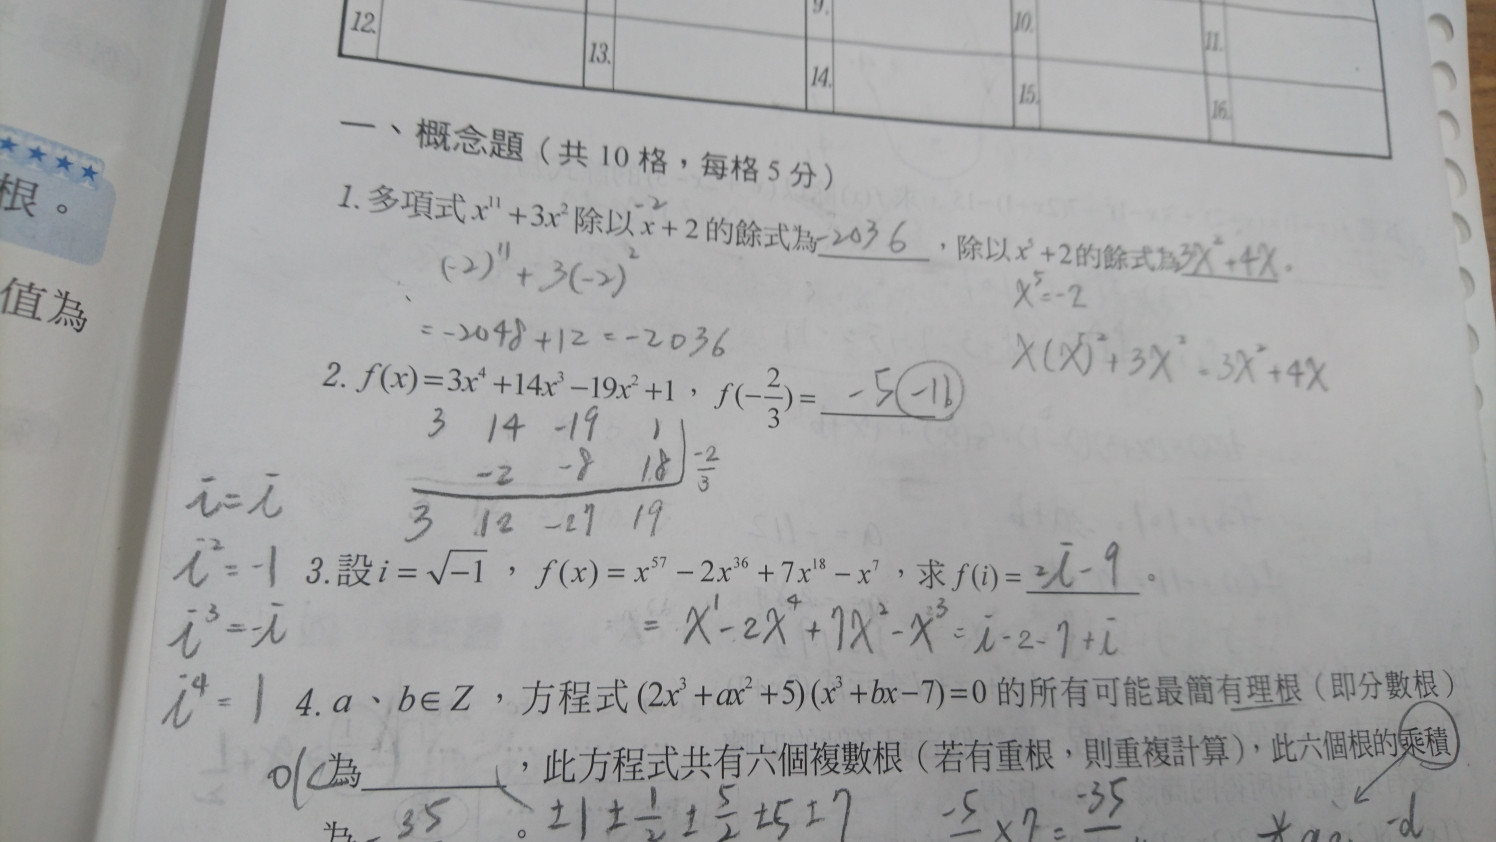 9.
10.
11.
12.
13.
14.
15.
16.
根。
值為
一、概念題（共 10 格，每格 5 分）
-2
1. 多項式 x¹¹ + 3x² 除以 x + 2 的餘式為 -2036 ，除以 x⁵ + 2 的餘式為 3X² + 4X 。
(-2)¹¹ + 3(-2)²
X⁵ = -2
= -2048 + 12 = -2036
X(X⁵)² + 3X² = 3X² + 4X
2. f(x) = 3x⁴ + 14x³ − 19x² + 1 ， f(−2/3) = -5 -16
3 14 -19 1
-2 -8 18 -2/3
3 12 -27 19
i = i
i² = -1
i³ = -i
i⁴ = 1
3. 設 i = √−1 ， f(x) = x⁵⁷ − 2x³⁶ + 7x¹⁸ − x⁷ ，求 f(i) = 2i - 9 。
= X¹ - 2X⁴ + 7X² - X³ = i - 2 - 7 + i
4. a 、 b ∈ Z ，方程式 (2x³ + ax² + 5)(x³ + bx − 7) = 0 的所有可能最簡有理根（即分數根）
為 ，此方程式共有六個複數根（若有重根，則重複計算），此六個根的乘積
為 - 35 。 ±1 ± 1/2 ± 5/2 ±5 ±7
-5 × 7 = -35
-d